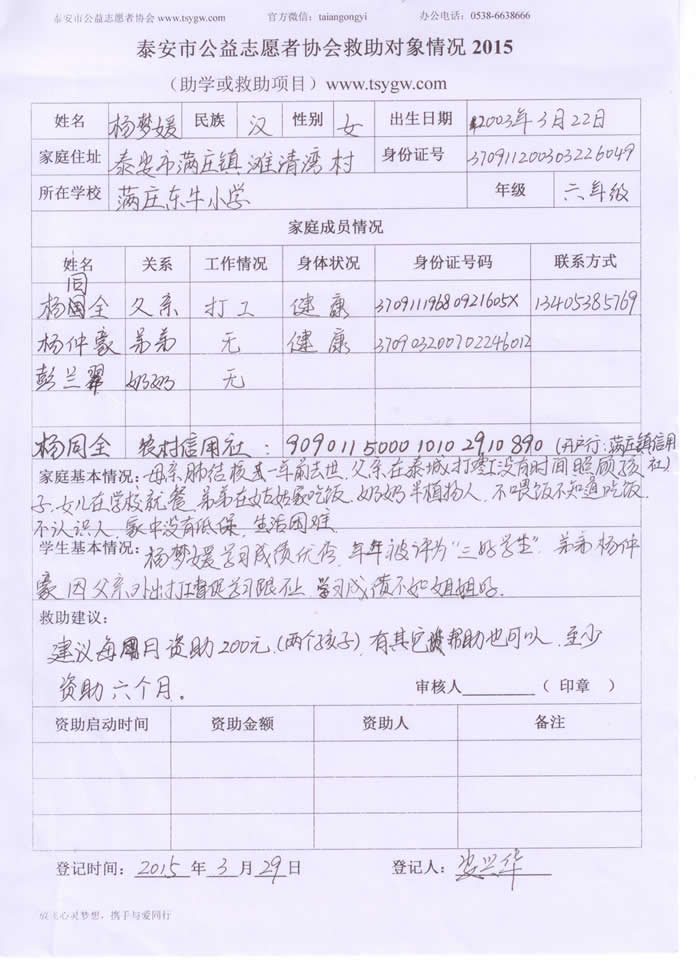 泰安市公益志愿者协会 www.tsygw.com 官方微信：taiangongyi 办公电话：0538-6638666
泰安市公益志愿者协会救助对象情况 2015
（助学或救助项目）www.tsygw.com
姓名 杨梦媛 民族 汉 性别 女 出生日期 2003年3月22日
家庭住址 泰安市满庄镇滩清湾村 身份证号 370911200303226049
所在学校 满庄东牛小学 年级 六年级
家庭成员情况
姓名 关系 工作情况 身体状况 身份证号码 联系方式
同
杨全 父亲 打工 健康 37091119680921605X 13405385769
杨仲豪 弟弟 无 健康 370903200702246012
彭兰翠 奶奶 无
杨同全 农村信用社：909011500010102910890（开户行：满庄镇信用
家庭基本情况：母亲肺结核去一年前去世，父亲在泰城打工没有时间照顾孩 社）
子，女儿在学校就餐，弟弟在姑姑家吃饭，奶奶半植物人，不喂饭不知道吃饭，
不认识人，家中没有低保，生活困难。
学生基本情况：杨梦媛学习成绩优秀，年年被评为“三好学生”，弟弟杨仲
豪因父亲外出打工督促学习跟不上，学习成绩不如姐姐好。
救助建议：
建议每月资助200元，（两个孩子），有其它帮助也可以，至少
资助六个月。 审核人 （印章）
资助启动时间 资助金额 资助人 备注
登记时间：2015年3月29日 登记人：兴华
放飞心灵梦想，携手与爱同行